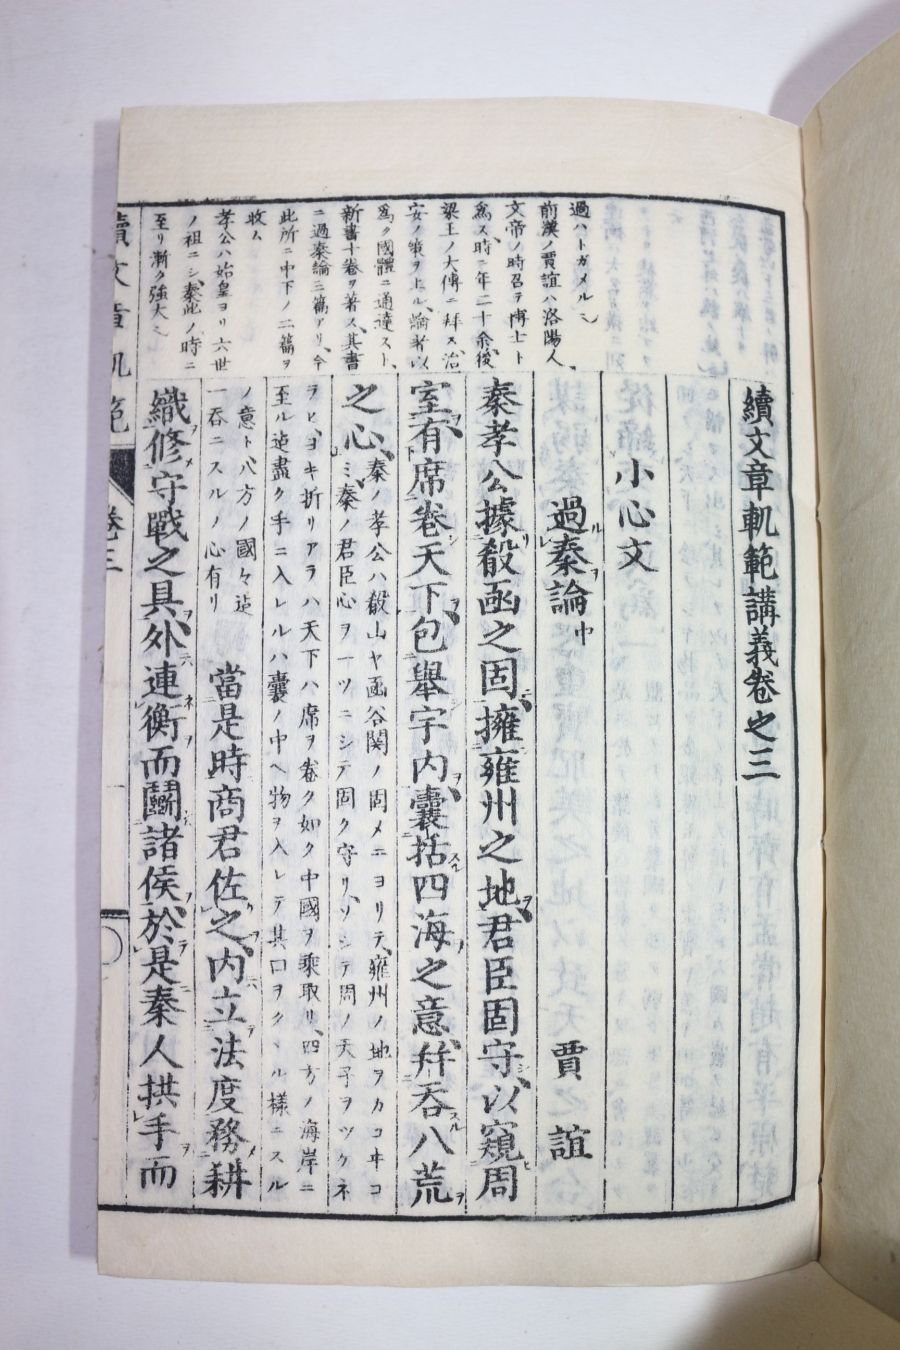 續文章軌範講義卷之三
小心文
過秦論中 賈誼
秦孝公據殽函之固擁雍州之地君臣固守以窺周
室有席卷天下包舉宇内囊括四海之意幷吞八荒
之心
秦ノ孝公ハ殽山ヤ函谷関ノ固メニヨリテ雍州ノ地ヲカコヰコ
ミ秦ノ君臣心ヲ一ツニシテ固ク守リソシテ周ノ天子ヲツケネ
ラヒヨキ折リアラハ天下ハ席ヲ卷ク如ク中國ヲ乘取リ四方ノ海岸ニ
至ル迄盡ク手ニ入レルハ囊ノ中ヘ物ヲ入レテ其口ヲクヽル樣ニスル
ノ意ト八方ノ國々迄
一吞ニスルノ心有リ
當是時商君佐之内立法度務耕
織修守戰之具外連衡而鬭諸侯於是秦人拱手而
過ハトガメル也
前漢ノ賈誼ハ洛陽人
文帝ノ時召ヲ博士ト
爲ス時ニ年二十余後
梁王ノ大傅ニ拜ス治
安ノ策ヲ上ル論者以
爲ク國體ニ通達スト
新書十卷ヲ著ス其書
ニ過秦論三篇アリ今
此所ニ中下ノ二篇ヲ
收ム
孝公ハ始皇ヨリ六世
ノ祖ニシ秦此ノ時ニ
至リ漸ク強大也
續文章軌範
卷三